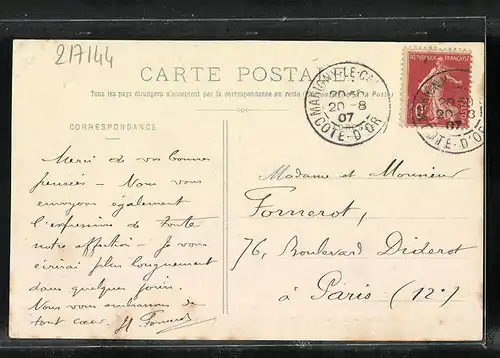 217144
CARTE POSTALE
Tous les pays étrangers n'acceptent pas la correspondance au recto (
CORRESPONDANCE
MARIGNY-LE-CA
20-8
07
COTE-D'OR
RÉPUBLIQUE FRANÇAISE
20-8
07
COTE-D'OR
Merci de vos bonnes
pensées - Nous vous
envoyons également
l'expression de toute
notre affection - Je vous
écrirai plus longuement
dans quelques jours.
Nous vous embrassons de
tout cœur. H Fornerot
Madame et Monsieur
Fornerot,
76, Boulevard Diderot
à Paris (12e)